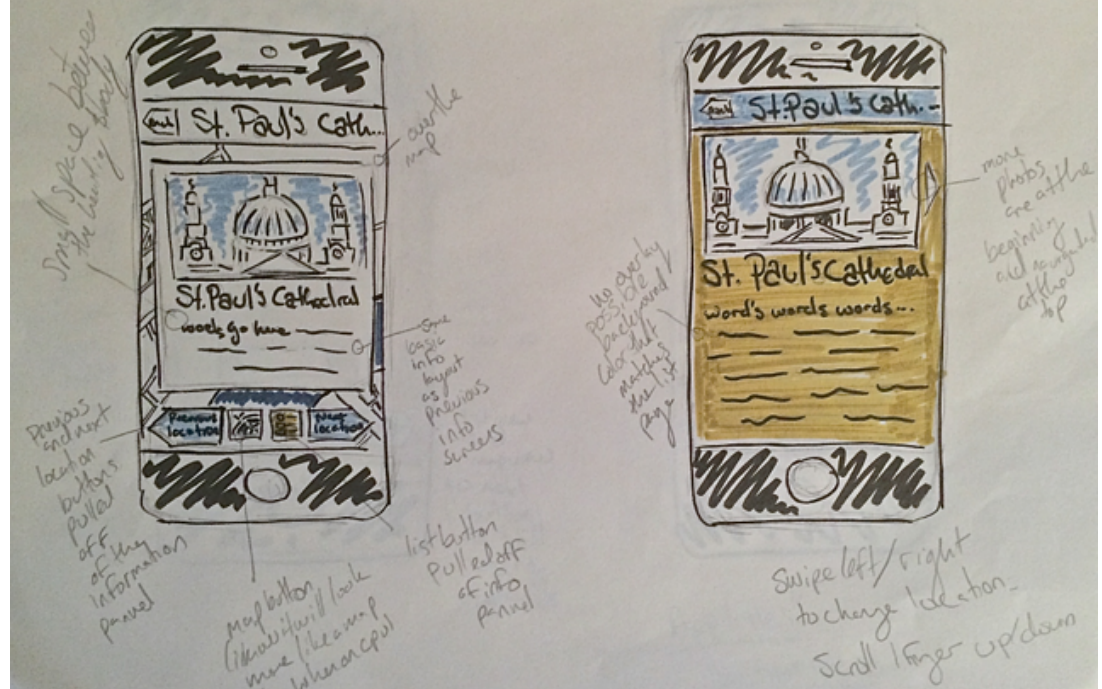 Small space between
the heading body
St. Paul's Cath...
over the
map
St. Paul's Cathedral
words go here
same
basic
info
layout
as
previous
info
screens
Previous
location
Next
location
Previous
and next
location
buttons
pulled
off
of the
information
pannel
map button
will look
more like a map
when on cpu
list button
pulled off
of info
pannel
St. Paul's Cath..
St. Paul's Cathedral
word's words words...
more
photos
are at the
beginning
and navigated
at the
top
no overlay
possible
background
color that
matches
the list
page
Swipe left/right
to change location
Scroll 1 Finger up/down